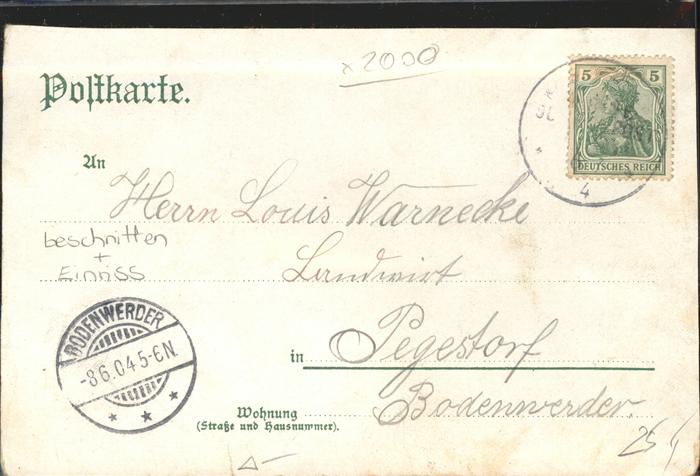 x 2000
Postkarte.
5 5
DEUTSCHES REICH
4
An
Herrn Louis Warnecke
beschnitten
+
Einriss
Landwirt
BODENWERDER
-8.6.04 5-6N.
in Pegestorf
Bodenwerder.
Wohnung
(Straße und Hausnummer).